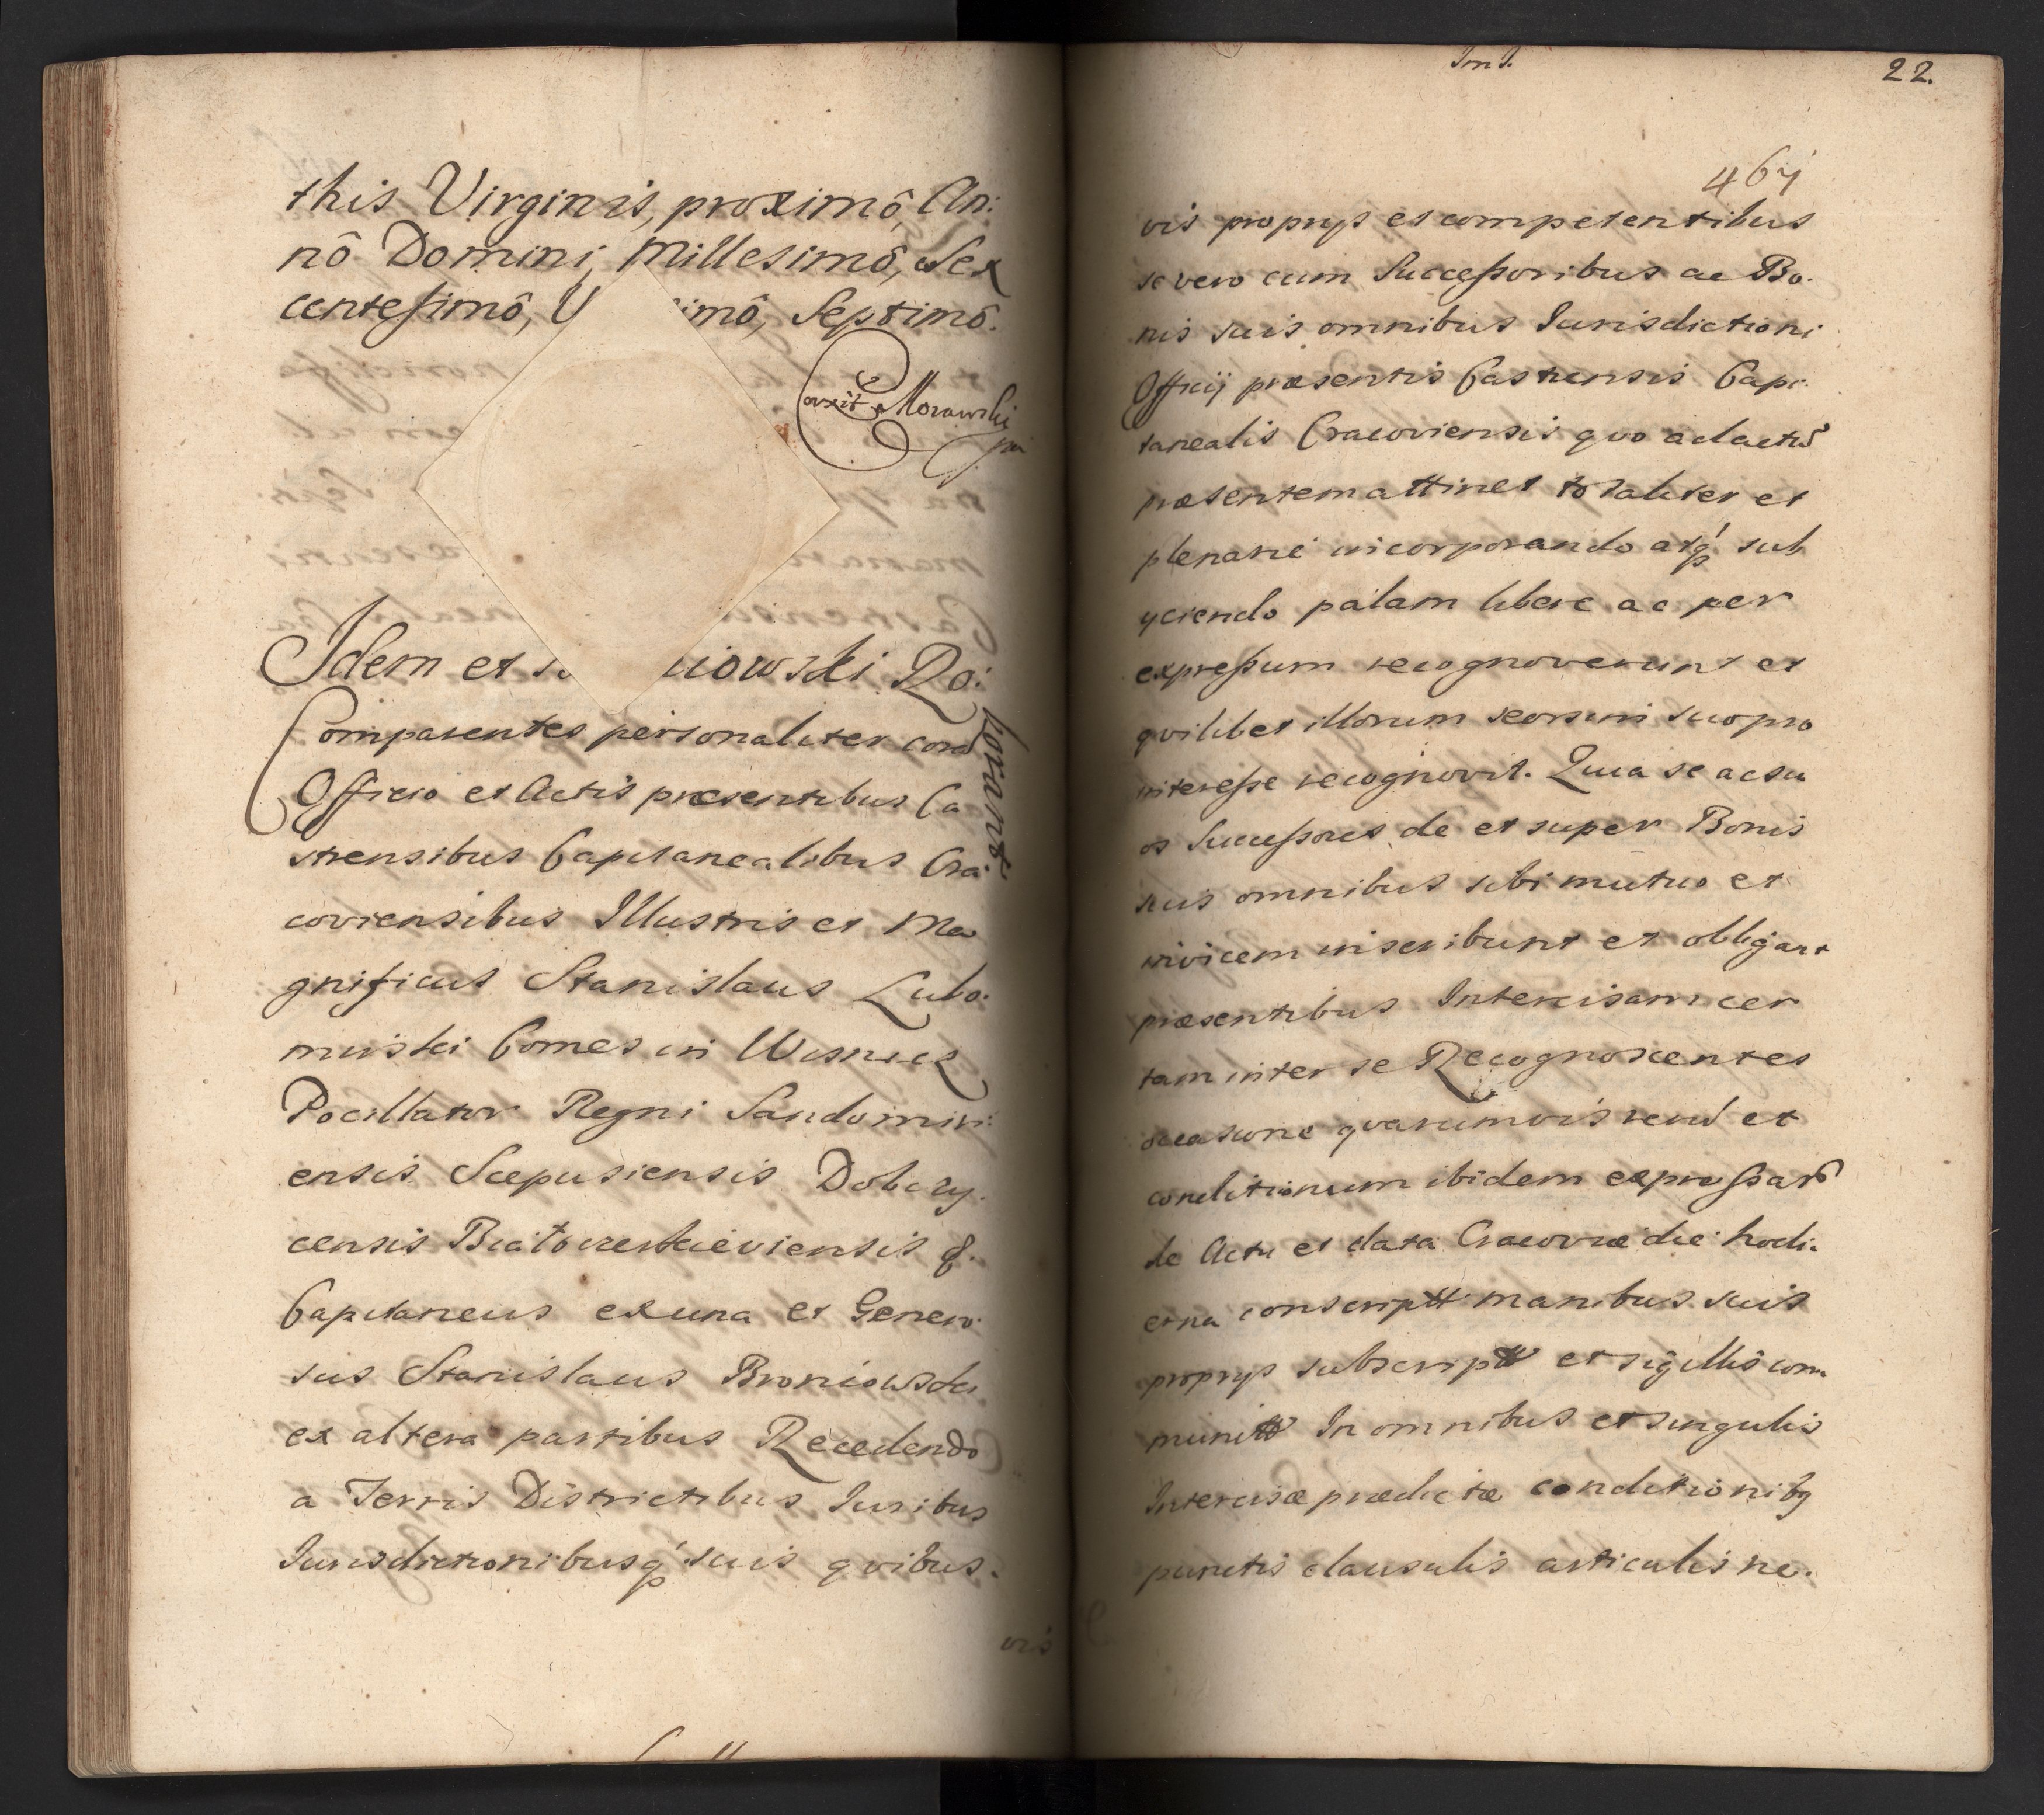 this Virginis, proximô, An:
nô Domini, Millesimô, Sex
centesimô, V imô, Septimô.
Corexit Morawski
Idem et iowski Ro:
borant
Comparentes personaliter corã
Officio et Actis præsentibus Ca
strensibus Capitanealibus Cra
coviensibus Illustris et Ma
gnificus Stanislaus Lubo:
mirski Comes in Wisnicz
Pocillator Regni Sandomiri:
ensis Scepusiensis Dobczy.
censis &.
Capitaneus ex una et Genero:
sus Stanislaus Broniowski
ex altera partibus Recedendo
a Terris Districtibus Iuribus
Iurisdictionibusq́ suis quibus.
vis
22.
461
vis proprys et competentibus
se vero cum Successoribus ac Bo.
nis suis omnibus Iurisdictioni
Officij præsentis Castrensis Capi.
tanealis Cracoviensis quo ad actũ
præsentem attinet totaliter et
plenarie incorporando atq́ sub
yciendo palam libere ac per
expressum recognoverunt et
quilibet illorum seorsim suo pro
interesse recognovit. Quia se ac su
os Successores de et super Bonis
suis omnibus sibi mutuo et
invicem inscribunt et obligant
præsentibus Intercisam cer
tam inter se Recognoscentes
occasione quarumvis rerũ et
conditionum ibidem expressarũ
de Actu et data Cracoviæ die hodi.
erna conscriptt manibus suis
proprys subscriptt et sigillis com
munitt In omnibus et singulis
Intercisæ prædictæ conditionibq
punctis clausulis articulis ne.